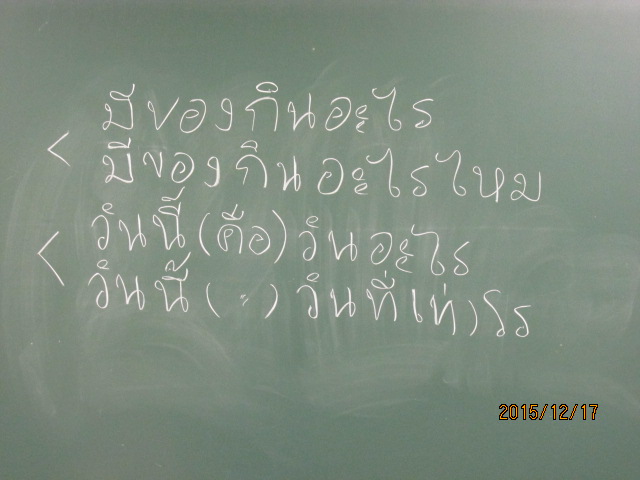 มีของกินอะไร
< มีของกินอะไรไหม
วันนี้(คือ)วันอะไร
< วันนี้( 〃 )วันที่เท่าไร
2015/12/17